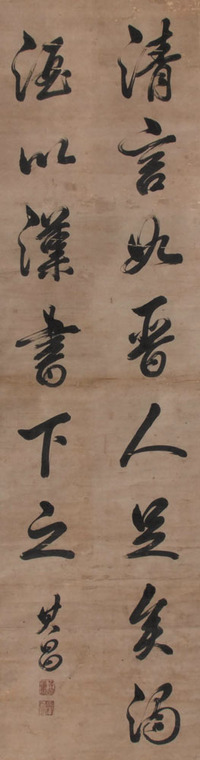 清言如晋人足矣濁
酒以漢書下之
其昌